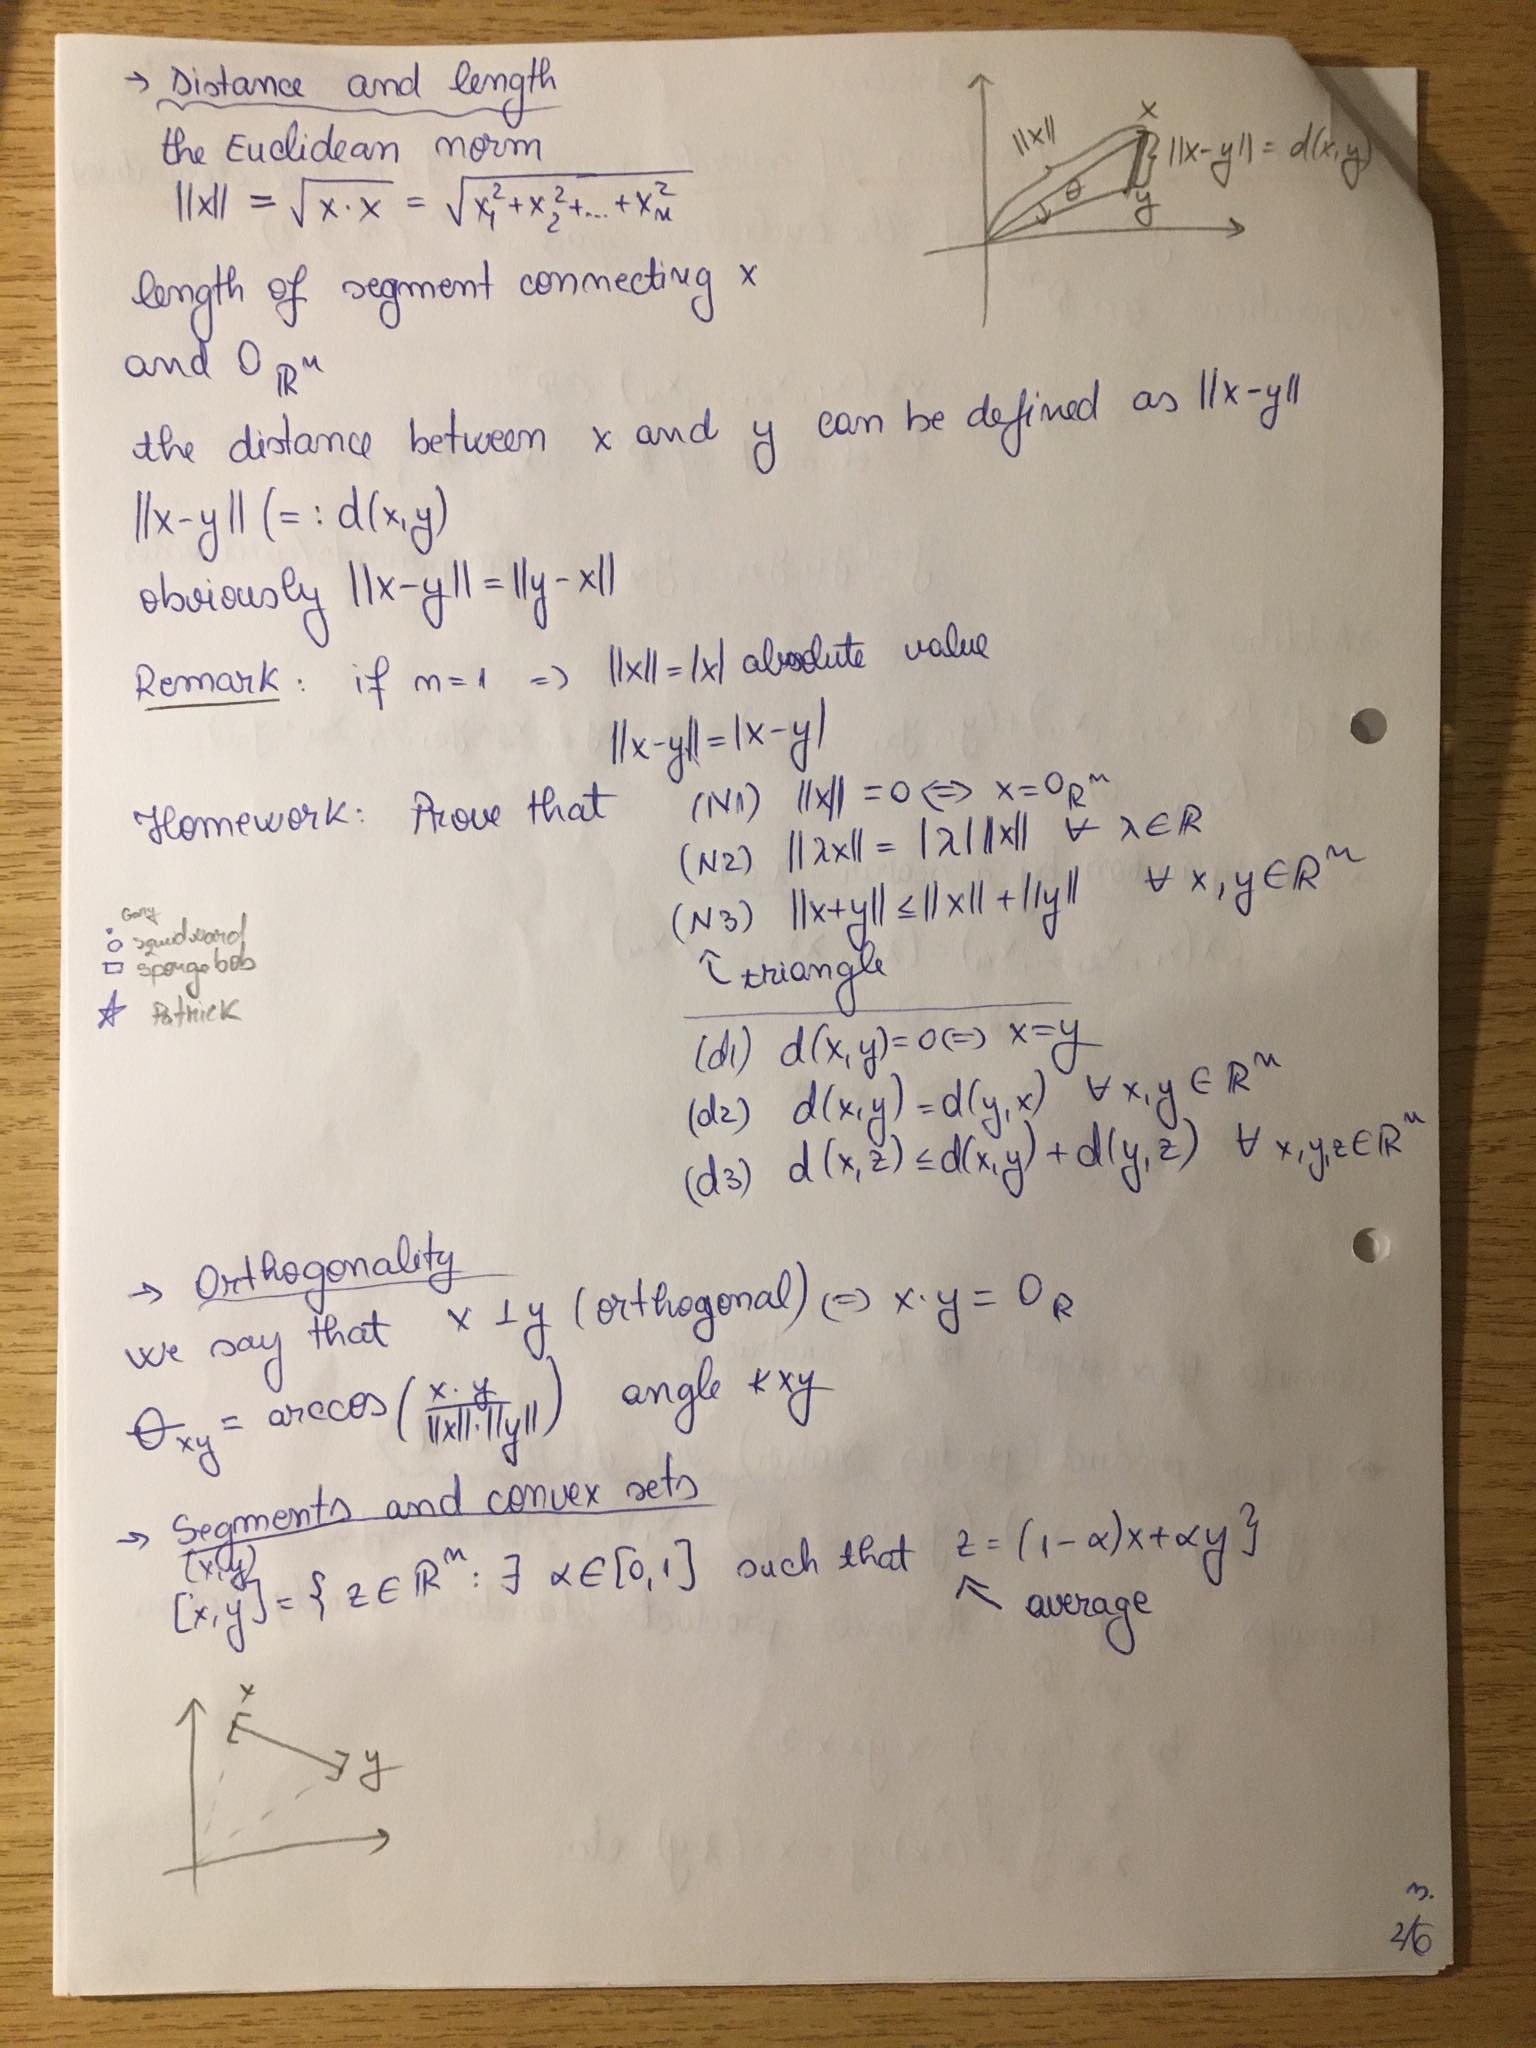 → Distance and length
the Euclidean norm
||x|| = √x·x = √x₁²+x₂²+...+xₙ²
x
||x||
θ
||x-y|| = d(x,y)
y
length of segment connecting x
and 0_ℝⁿ
the distance between x and y can be defined as ||x-y||
||x-y|| (=: d(x,y)
obviously ||x-y|| = ||y-x||
Remark: if n=1 => ||x|| = |x| absolute value
||x-y|| = |x-y|
Homework: Prove that (N1) ||x|| = 0 <=> x = 0_ℝⁿ
(N2) ||λx|| = |λ| ||x|| ∀ λ∈ℝ
(N3) ||x+y|| ≤ ||x|| + ||y|| ∀ x,y∈ℝⁿ
↑ triangle
Gary
○ squidward
□ spongebob
☆ Patrick
(d1) d(x,y)=0 <=> x=y
(d2) d(x,y) = d(y,x) ∀ x,y ∈ ℝⁿ
(d3) d(x,z) ≤ d(x,y) + d(y,z) ∀ x,y,z∈ℝⁿ
→ Orthogonality
we say that x ⊥ y (orthogonal) <=> x·y = 0_ℝ
θ_xy = arccos(x·y / ||x||·||y||) angle ∢xy
→ Segments and convex sets
(x,y)
[x,y] = { z∈ℝⁿ : ∃ α∈[0,1] such that z = (1-α)x+αy }
↖ average
x
y
3.
2/6